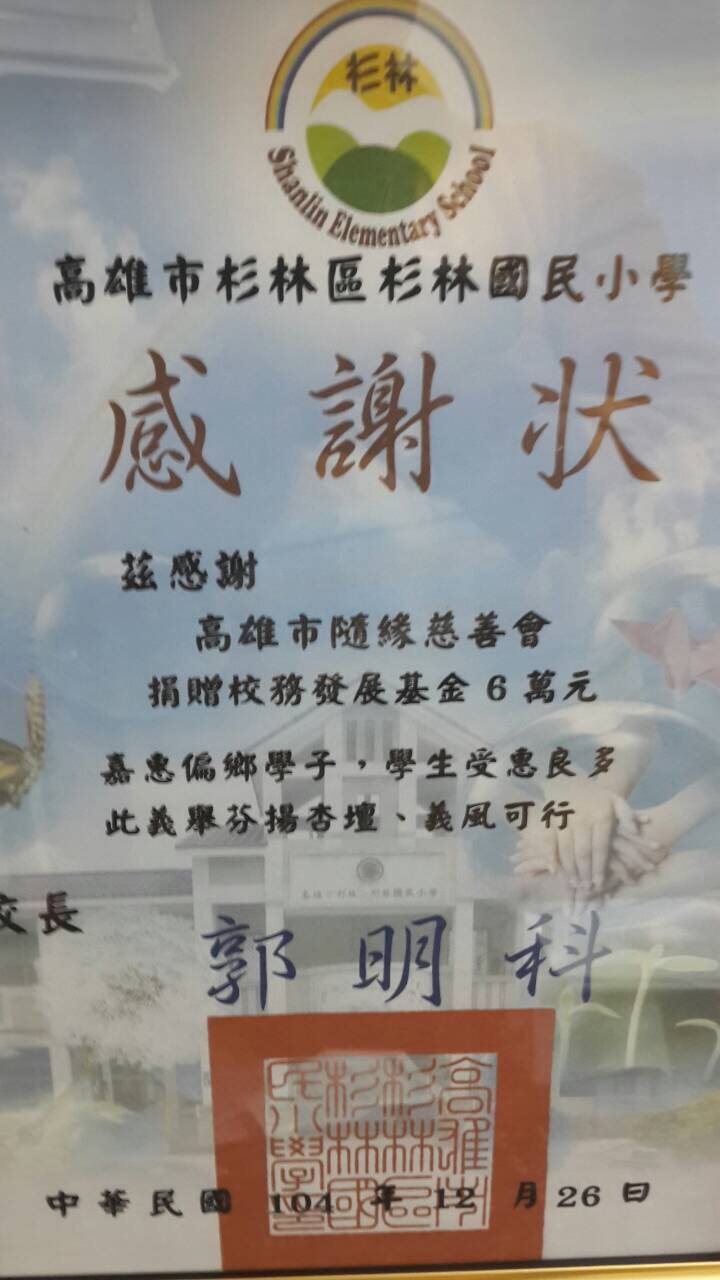 杉林
Shanlin Elementary School
高雄市杉林區杉林國民小學
感謝狀
茲感謝
高雄市隨緣慈善會
捐贈校務發展基金6萬元
嘉惠偏鄉學子，學生受惠良多
此義舉芬揚杏壇、義風可行
校長
郭明科
高雄市杉林區杉林國民小學
中華民國 104 年 12 月 26 日